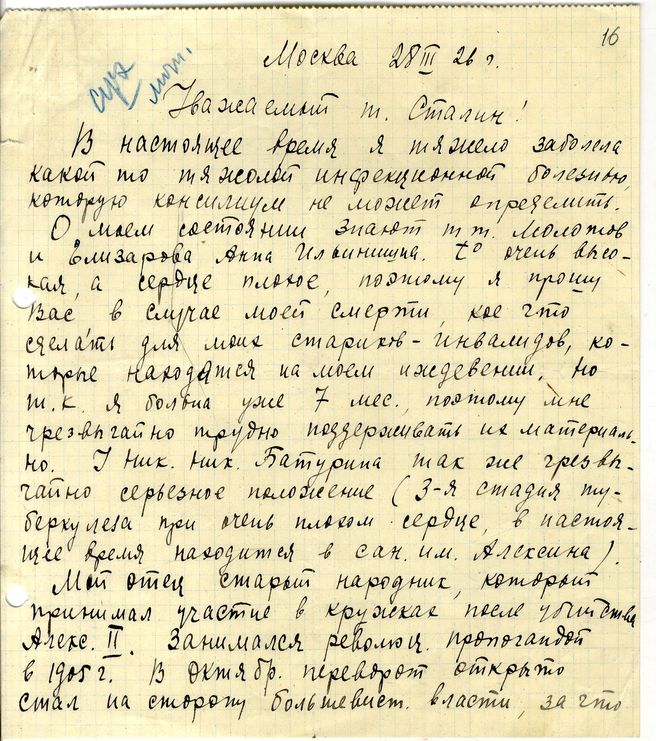 16
арх
Москва 28 III 26 г.
Уважаемый т. Сталин!
В настоящее время я тяжело заболела
какой то тяжолой инфекционной болезнью,
которую консилиум не может определить.
О моем состоянии знают т.т. Молотов
и Елизарова Анна Ильинишна. t° очень высо-
кая, а сердце плохое, поэтому я прошу
Вас в случае моей смерти, кое что
сделать для моих стариков-инвалидов, ко-
торые находятся на моем иждевении. Но
т.к. я больна уже 7 мес., поэтому мне
чрезвычайно трудно поддерживать их материаль-
но. У Ник. Ник. Батурина так же чрезвы-
чайно серьезное положение (3-я стадия ту-
беркулеза при очень плохом сердце, в настоя-
щее время находится в сан. им. Алексина).
Мой отец старый народник, который
принимал участие в кружках после убийства
Алекс. II. Занимался революц. пропогандой
в 1905 г. В Октябр. переворот открыто
стал на сторону большевист. власти, за что